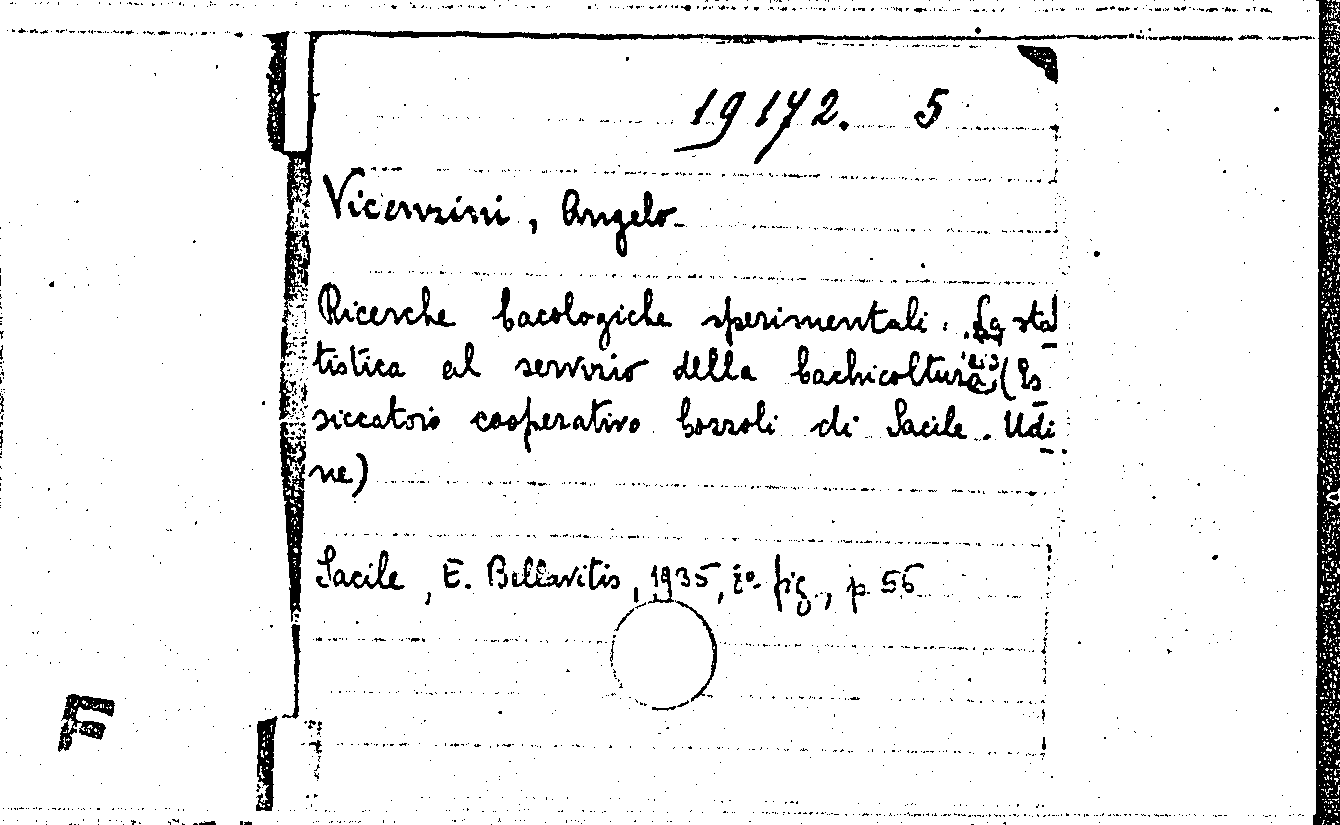 19172. 5
Vicenzini, Angelo.
Ricerche bacologiche sperimentali. La sta
tistica al servizio della bachicoltura (Es
siccatoio cooperativo bozzoli di Sacile. Udi
ne)
Sacile, E. Bellavitis, 1935, 8º fig., p 56
F